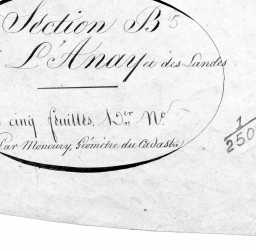 Section B 5
L'Anay et des Landes
cinq feuilles, 12.er N.o
Par Moncury, Géomètre du Cadastre
1/250